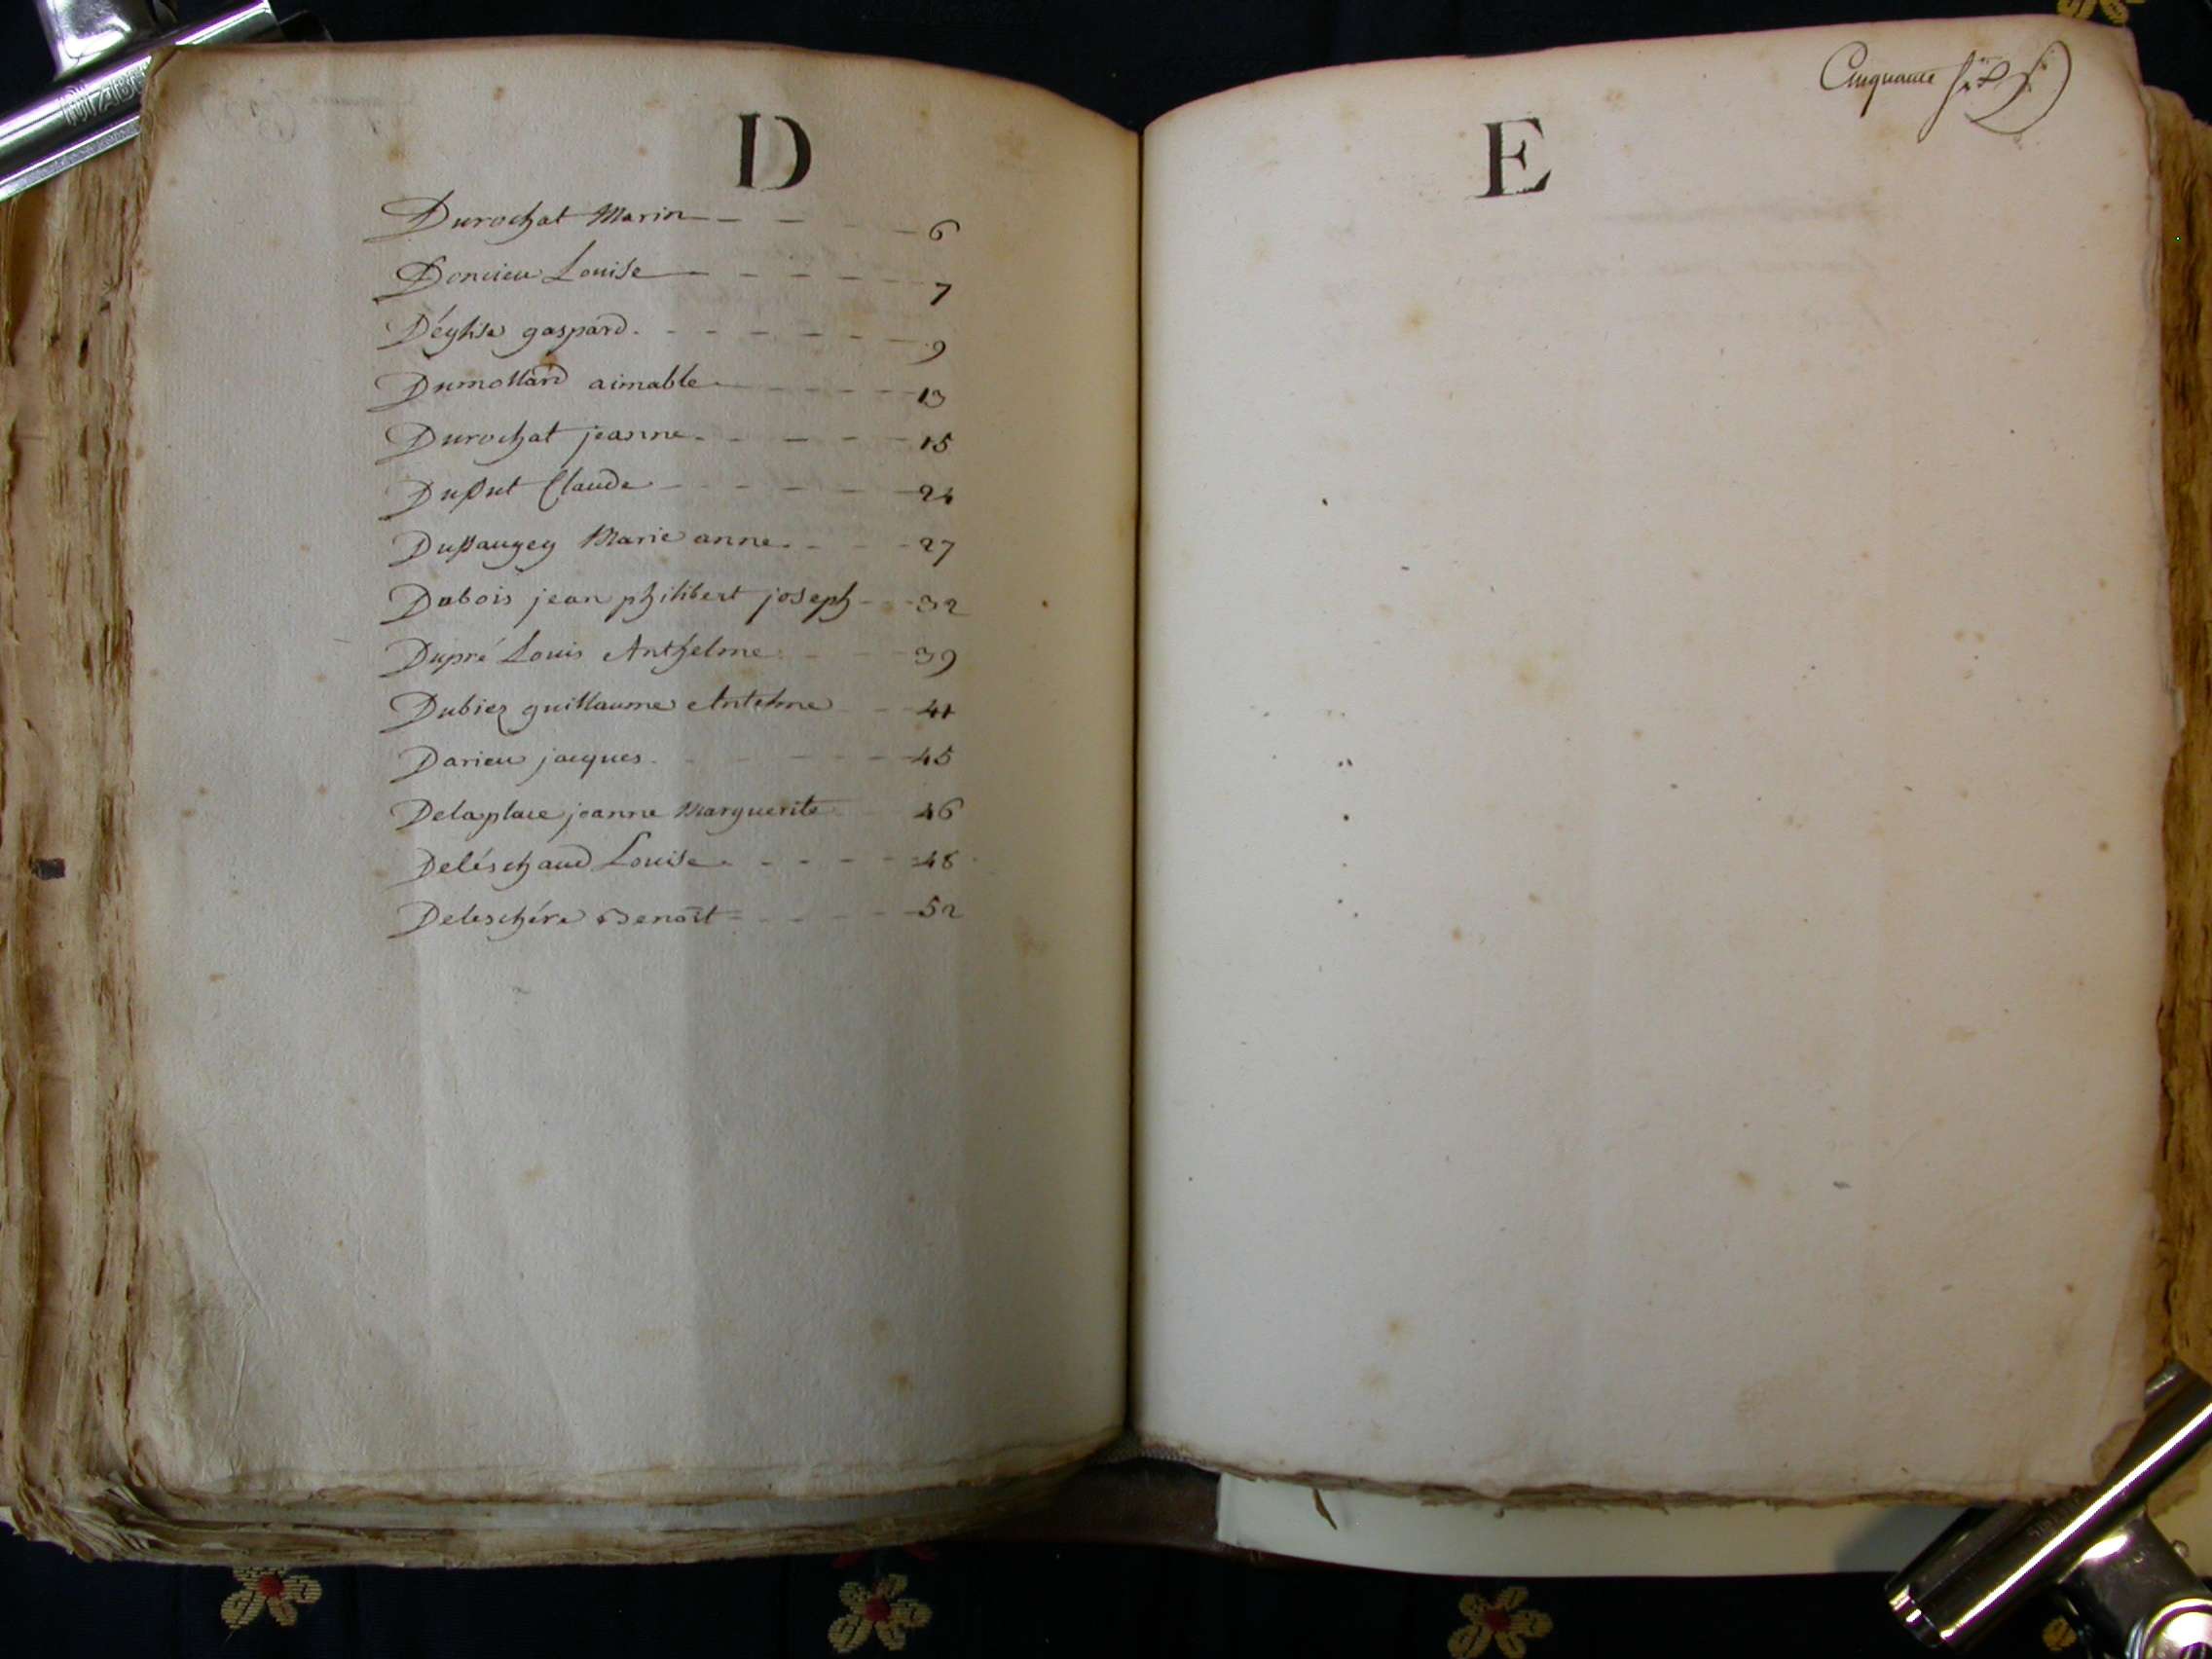 D
Durochat Marin - - - 6
Doncieu Louise - - - - - 7
Déglise gaspard. - - - - - - 9
Dumollard aimable - - - - 13
Durochat jeanne - - - - - 15
Duput Claude - - - - - - 24
Dupaugey Marie anne. - - - 27
Dubois jean philibert joseph - - 32
Dupré Louis Anthelme - - - 39
Dubiez guillaume Antelme - - 41
Darieu jacques. - - - - - 45
Delaplace jeanne Marguerite 46
Deléschaud Louise - - - - - 48
Deleschére Benoît - - - - - 52
E
Cinquante Sept